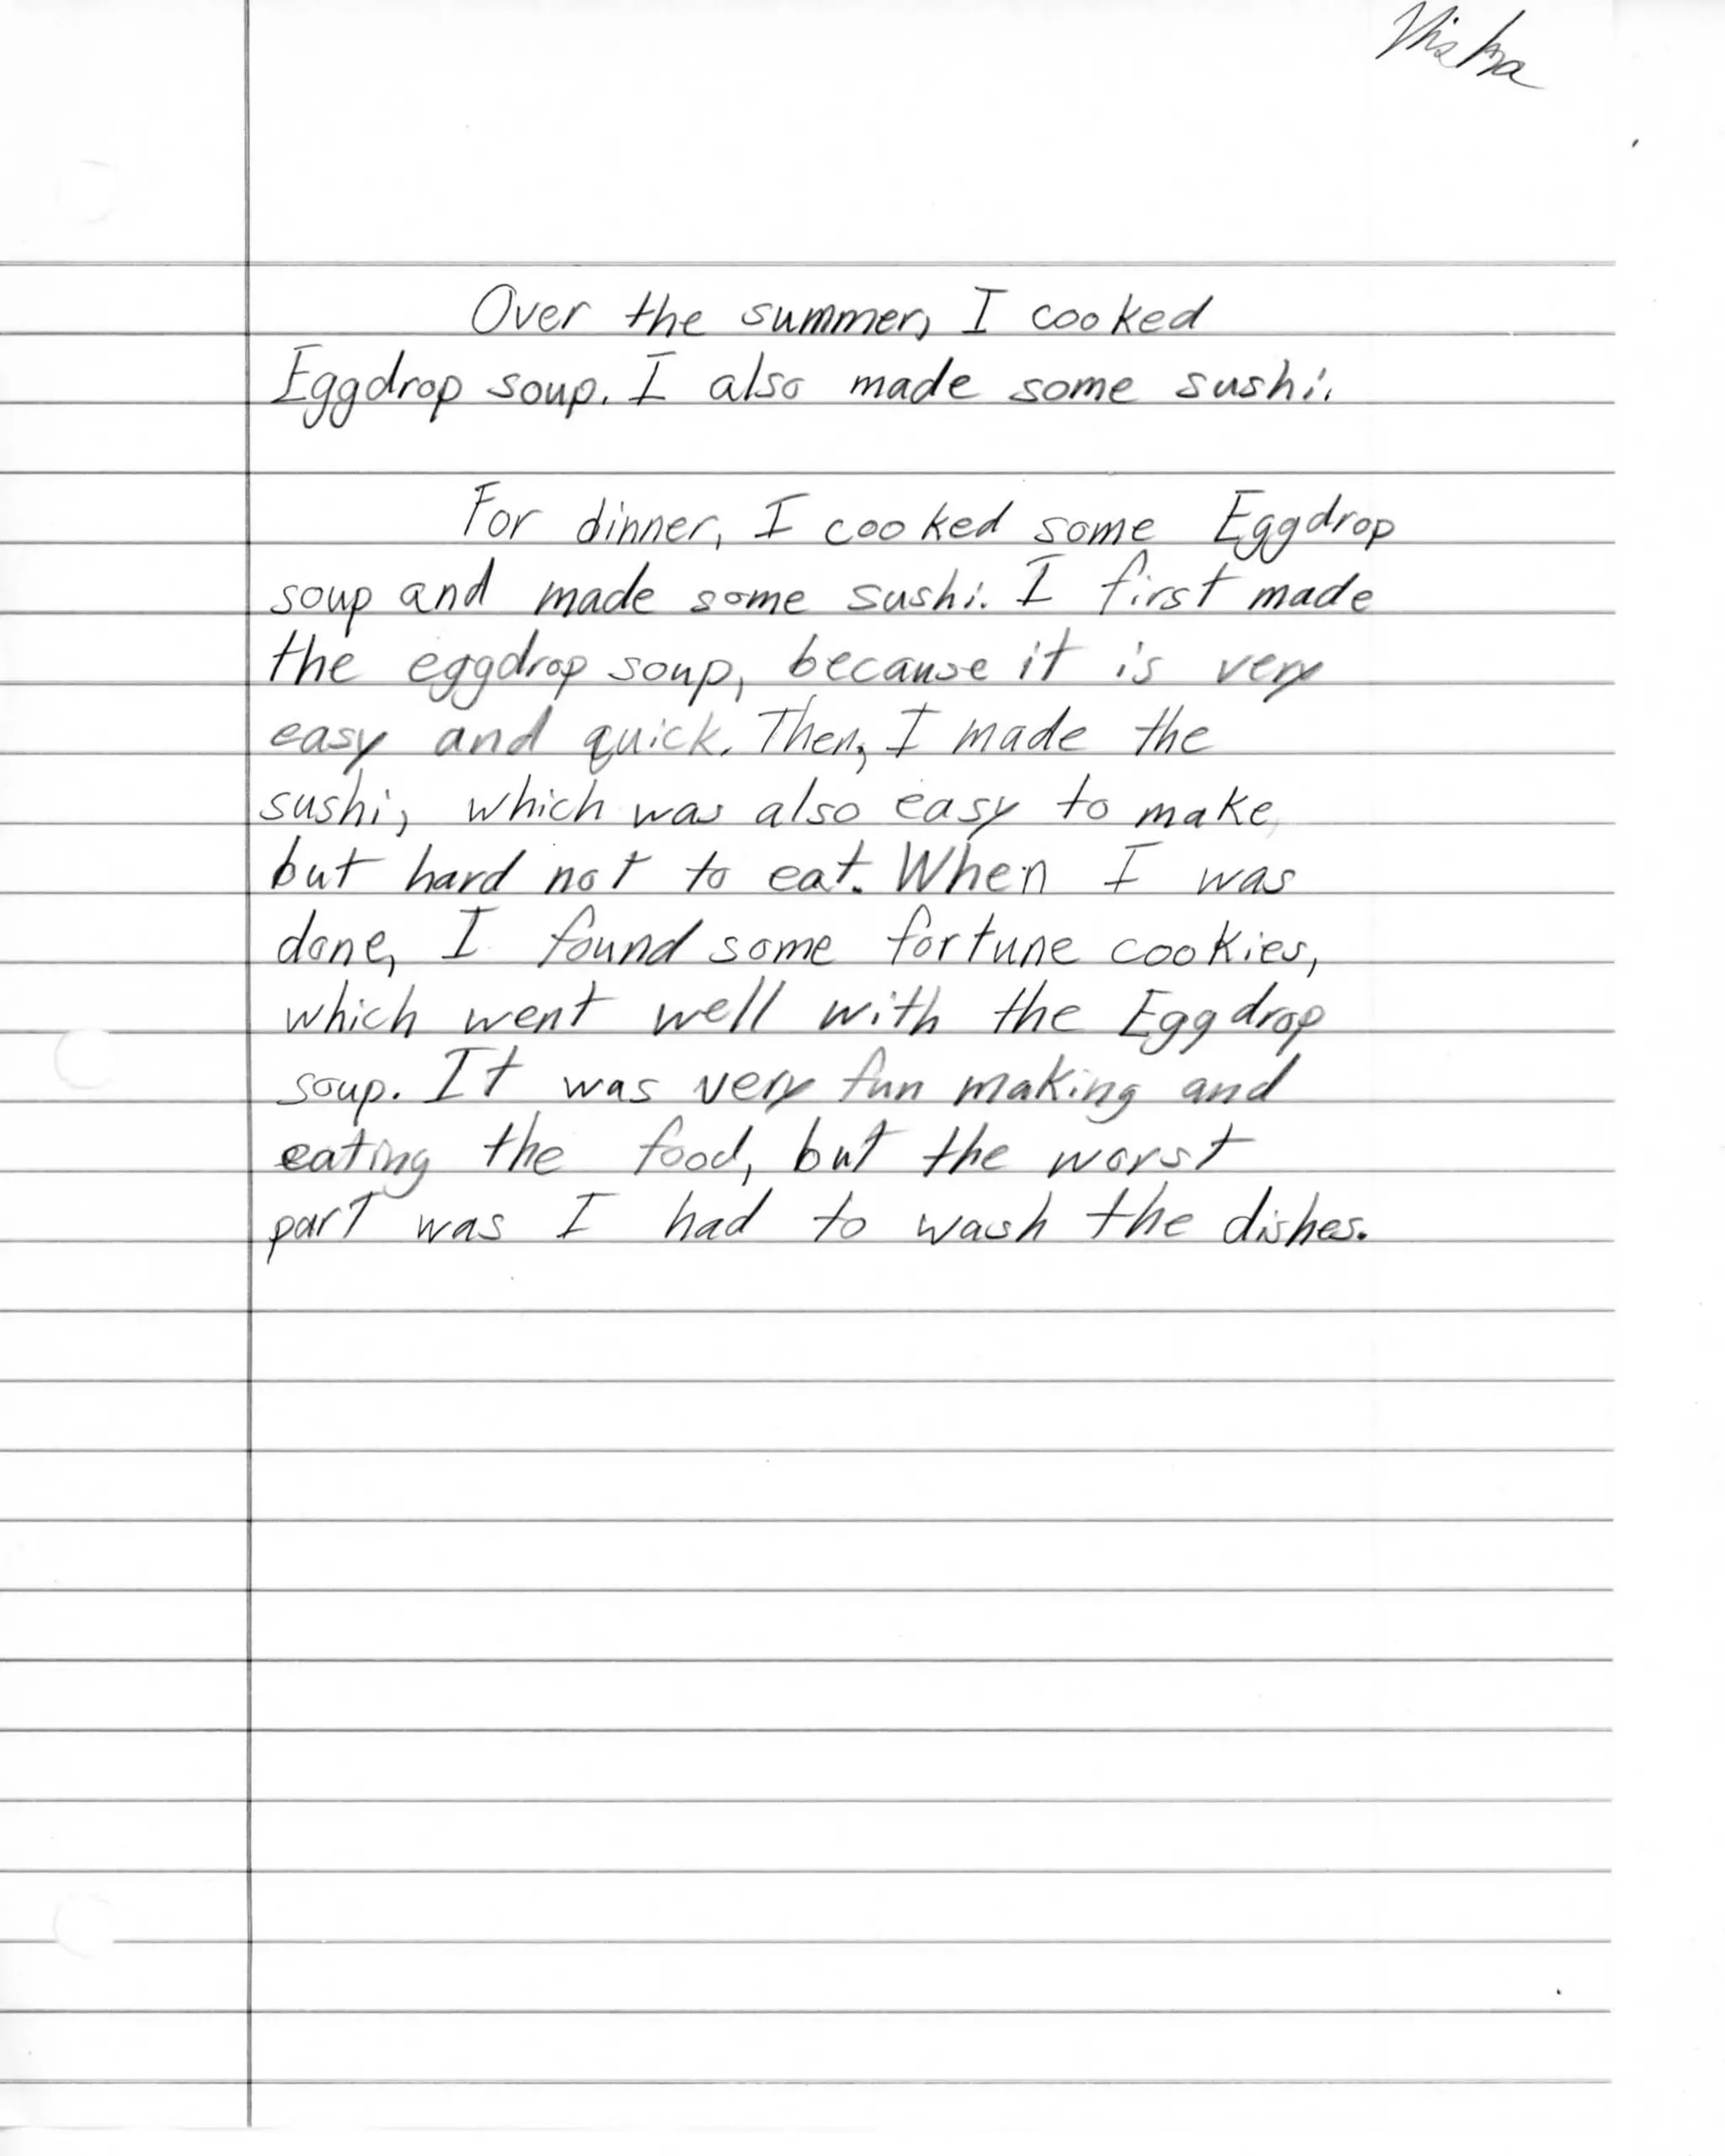 Over the summer, I cooked
Eggdrop soup. I also made some sushi.
For dinner, I cooked some Eggdrop
soup and made some sushi. I first made
the eggdrop soup, because it is very
easy and quick. Then, I made the
sushi, which was also easy to make,
but hard not to eat. When I was
done, I found some fortune cookies,
which went well with the Eggdrop
soup. It was very fun making and
eating the food, but the worst
part was I had to wash the dishes.